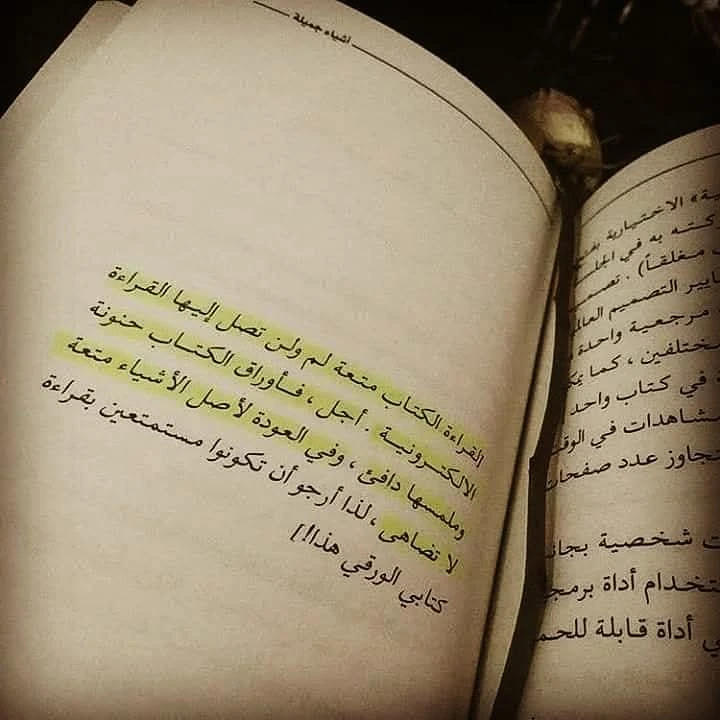 أشياء جميلة
القراءة الكتاب متعة لم ولن تصل إليها القراءة
الالكترونية . أجل ، فأوراق الكتاب حنونة
وملمسها دافئ ، وفي العودة لأصل الأشياء متعة
لا تضاهى ، لذا أرجو أن تكونوا مستمتعين بقراءة
كتابي الورقي هذا!]
الاختيارية
به في
مغلقاً) .
التصميم
مرجعية واحدة
، كما
في كتاب واحد
في الوقت
عدد صفحات
شخصية
أداة
أداة قابلة